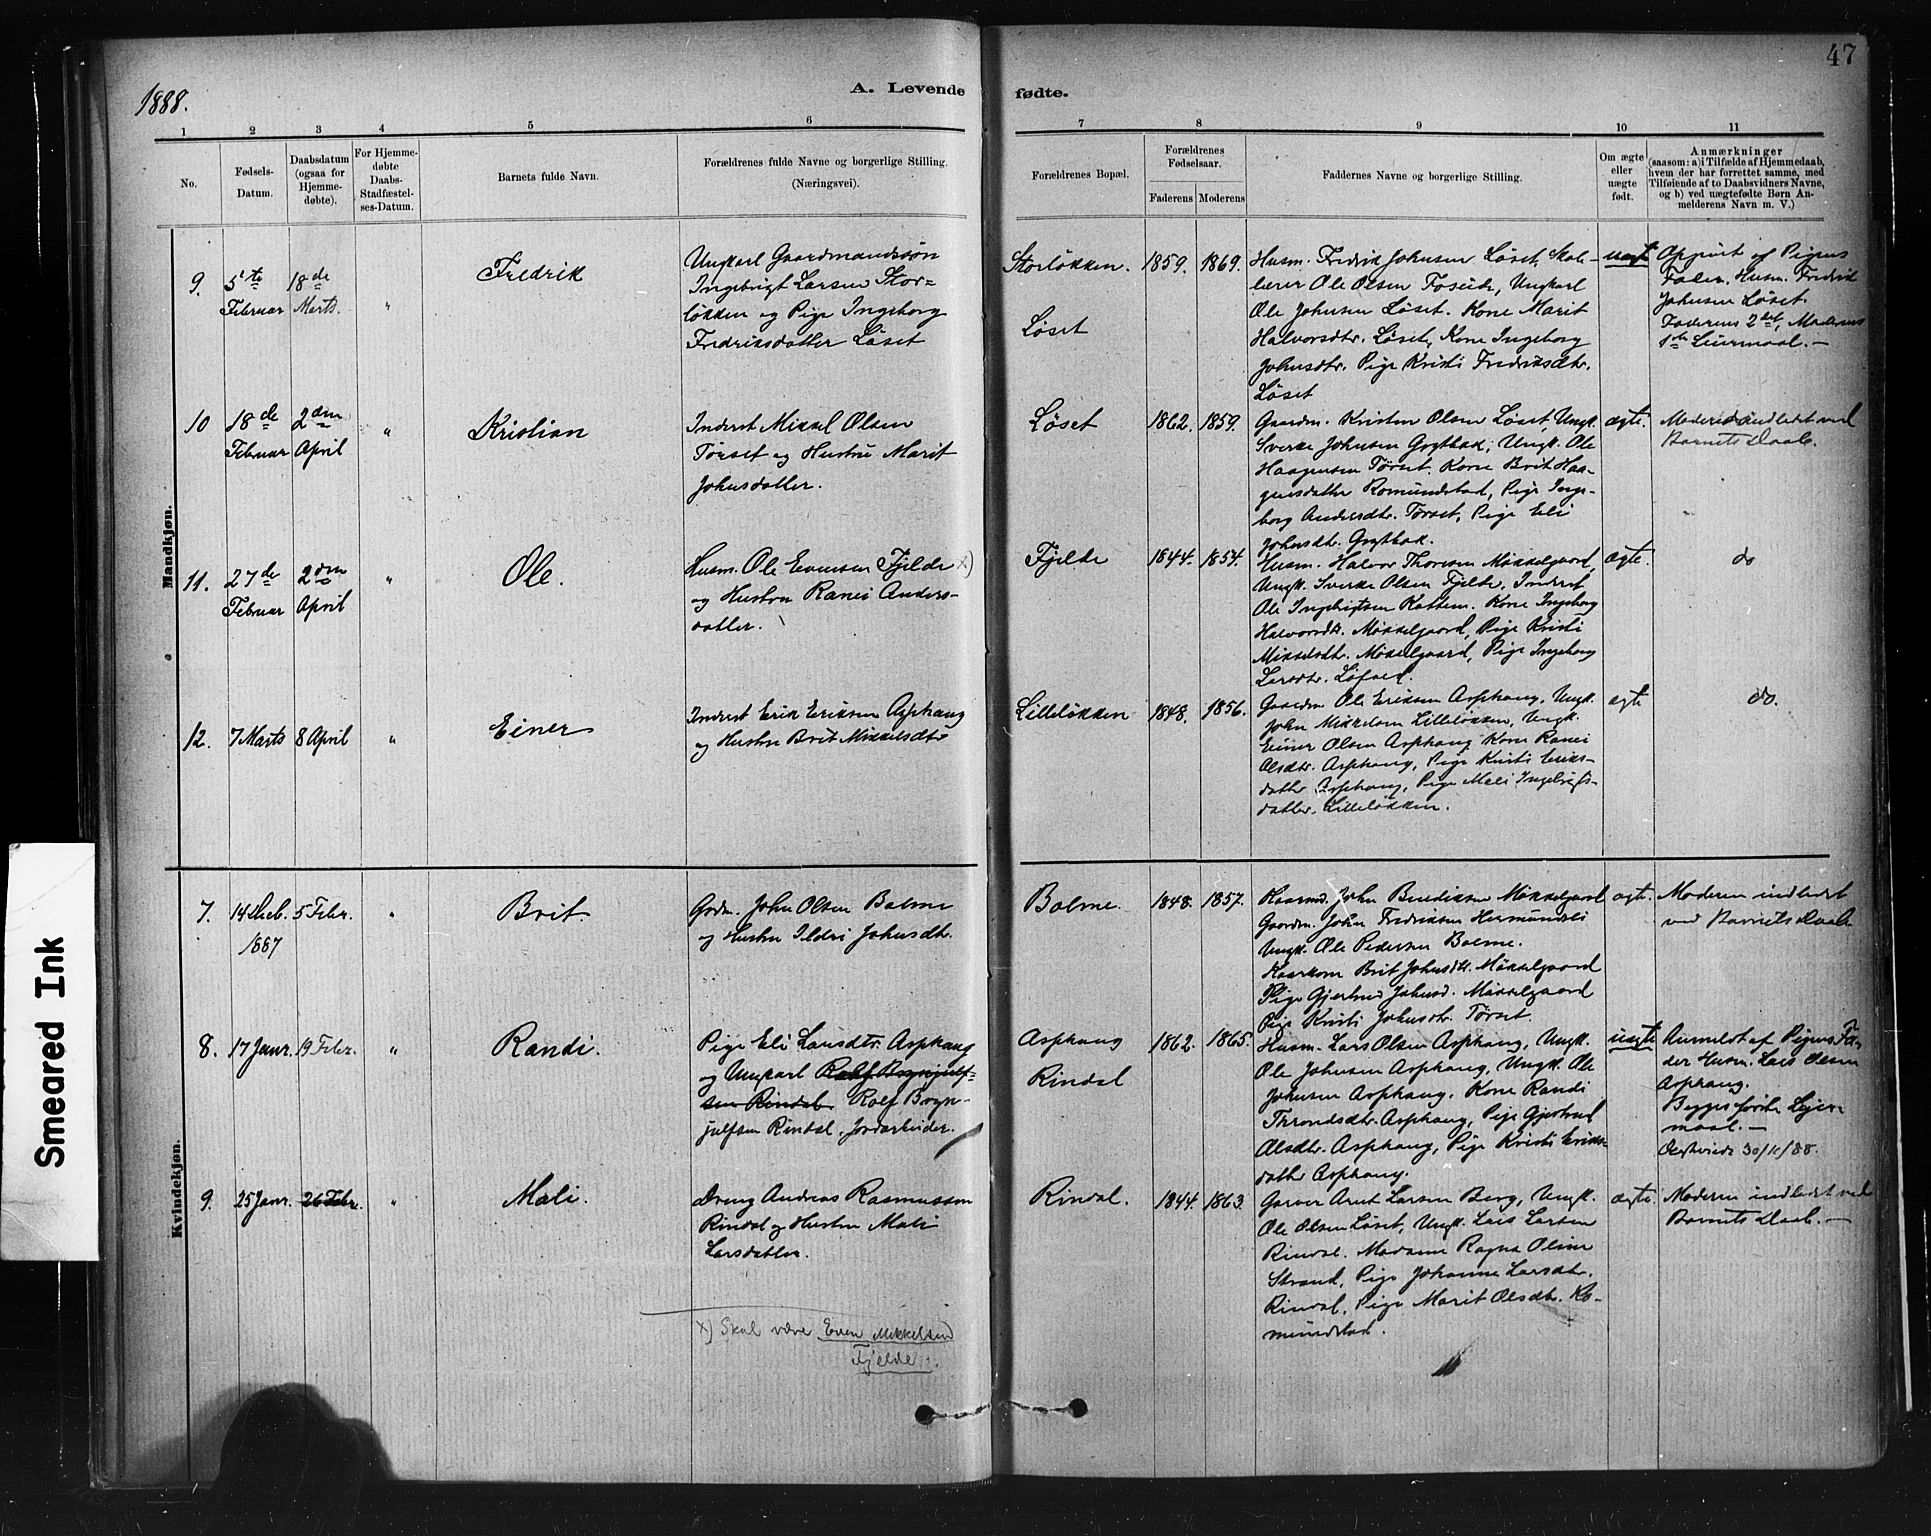 47
1888.
A. Levende fødte.
1 2 3 4 5 6 7 8 9 10 11
No.
Fødsels-
Datum.
Daabsdatum
(ogsaa for
Hjemme-
døbte).
For Hjemme-
døbte
Daabs-
Stadfæstel-
ses-Datum.
Barnets fulde Navn.
Forældrenes fulde Navne og borgerlige Stilling.
(Næringsvei).
Forældrenes Bopæl.
Forældrenes
Fødselsaar.
Faderens Moderens
Faddernes Navne og borgerlige Stilling.
Om ægte
eller
uægte
født.
Anmærkninger
(saasom: a) i Tilfælde af Hjemmedaab,
hvem der har forrettet samme, med
Tilføiende af to Daabsvidners Navne,
og b) ved uægtefødte Børn An-
melderens Navn m. V.)
Mandkjøn.
9.
5te
Februar
18de
Marts.
"
Fredrik
Ungkarl Gaardmandssøn
Ingebrigt Larsen Stor-
løkken og Pige Ingeborg
Fredriksdatter Løset
Storløkken.
Løset
1859. 1869.
Husm. Fredrik Johnsen Løset, Skole-
lærer Ole Olsen Foseide, Ungkarl
Ole Johnsen Løset. Kone Marit
Halvorsdtr. Løset, Kone Ingeborg
Johnsdtr. Pige Kristi Fredriksdtr.
Løset
uægt
Opgivet af Pigens
Fader, Husm. Fredrik
Johnsen Løset.
Faderens 2det, Moderens
1ste Leiermaal. —
10
18de
Februar
2den
April
"
Kristian
Inderst Mikkel Olsen
Tørset og Hustru Marit
Johnsdatter.
Løset
1862. 1859.
Gaardm. Kristen Olsen Løset, Ungk.
Sverke Johnsen Grytbak, Ungk. Ole
Haagensen Tørset. Kone Brit Haa-
gensdatter Romundstad, Pige Inge-
borg Andersdtr. Tørset, Pige Eli
Johnsdtr. Grytbak.
ægte.
Moderen indledet ved
Barnets Daab.
11.
27de
Februar
2den
April
"
Ole.
Husm. Ole Evensen Fjelde x)
og Hustru Ranei Anders-
datter.
Fjelde
1844. 1854.
Husm. Halvor Thoresen Møkkelgaard,
Ungk. Sverke Olsen Fjelde, Inderst
Ole Ingebrigtsen Kattem. Kone Ingeborg
Halvorsdtr. Møkkelgaard, Pige Kristi
Mikkelsdtr. Møkkelgaard, Pige Ingeborg
Larsdtr.
ægte.
do
12.
7 Marts
8 April
"
Einer
Inderst Erik Eriksen Asphaug
og Hustru Brit Mikkelsdtr
Lilleløkken
1848. 1856.
Gaardm Ole Eriksen Asphaug, Ungk.
John Mikkelsen Lilleløkken, Ungk.
Einer Olsen Asphaug Kone Ranei
Olsdtr. Asphaug, Pige Kristi Eriks-
datter Asphaug, Pige Mali Ingebrigts-
datter. Lilleløkken.
ægte
do.
Kvindekjøn.
7.
14 Decb.
1887
5 Febr.
"
Brit
Gdm. John Olsen Bolme
og Hustru Ildri Johnsdtr.
Bolme.
1848. 1857.
Kaarmd. John Bendiksen Møkkelgaard
Gaardm. John Fredriksen Hermundsli
Ungk. Ole Pedersen Bolme.
Kaarkone Brit Johnsdtr. Møkkelgaard
Pige Gjertrud Johnsd. Møkkelgaard
Pige Kristi Johnsdtr. Tørset.
ægte.
Moderen indledet
ved Barnets Daab
8.
17 Janr.
19 Febr.
"
Randi.
Pige Eli Larsdtr. Asphaug
og Ungkarl Rolf Brynjulf-
sen Rindal. Rolf Bryn-
julfsen Rindal, Jordarbeider.
Asphaug
Rindal
1862. 1865.
Husm. Lars Olsen Asphaug, Ungk.
Ole Johnsen Asphaug, Ungk. Ole
Johnsen Asphaug. Kone Randi
Throndsdtr. Asphaug, Pige Gjertrud
Olsdtr. Asphaug, Pige Kristi Eriks-
datter Asphaug.
uægte
Anmeldt af Pigens Fa-
der Husm. Lars Olsen
Asphaug.
Begges første Leier-
maal. —
30/11/88.
9.
25 Janr.
26 Febr.
"
Mali.
Dreng Andreas Rasmussen
Rindal og Hustru Mali
Larsdatter.
Rindal.
1844. 1863.
Garver Arnt Larsen Berg, Ungk.
Ole Olsen Løset, Ungk. Lars Larsen
Rindal. Madame Ragna Oline
Strand, Pige Johanne Larsdtr.
Rindal, Pige Marit Olsdtr. Ro-
mundstad.
ægte.
Moderen indledet ved
Barnets Daab. —
x) Skal være Even Mikkelsen
Fjelde.
Smeared Ink